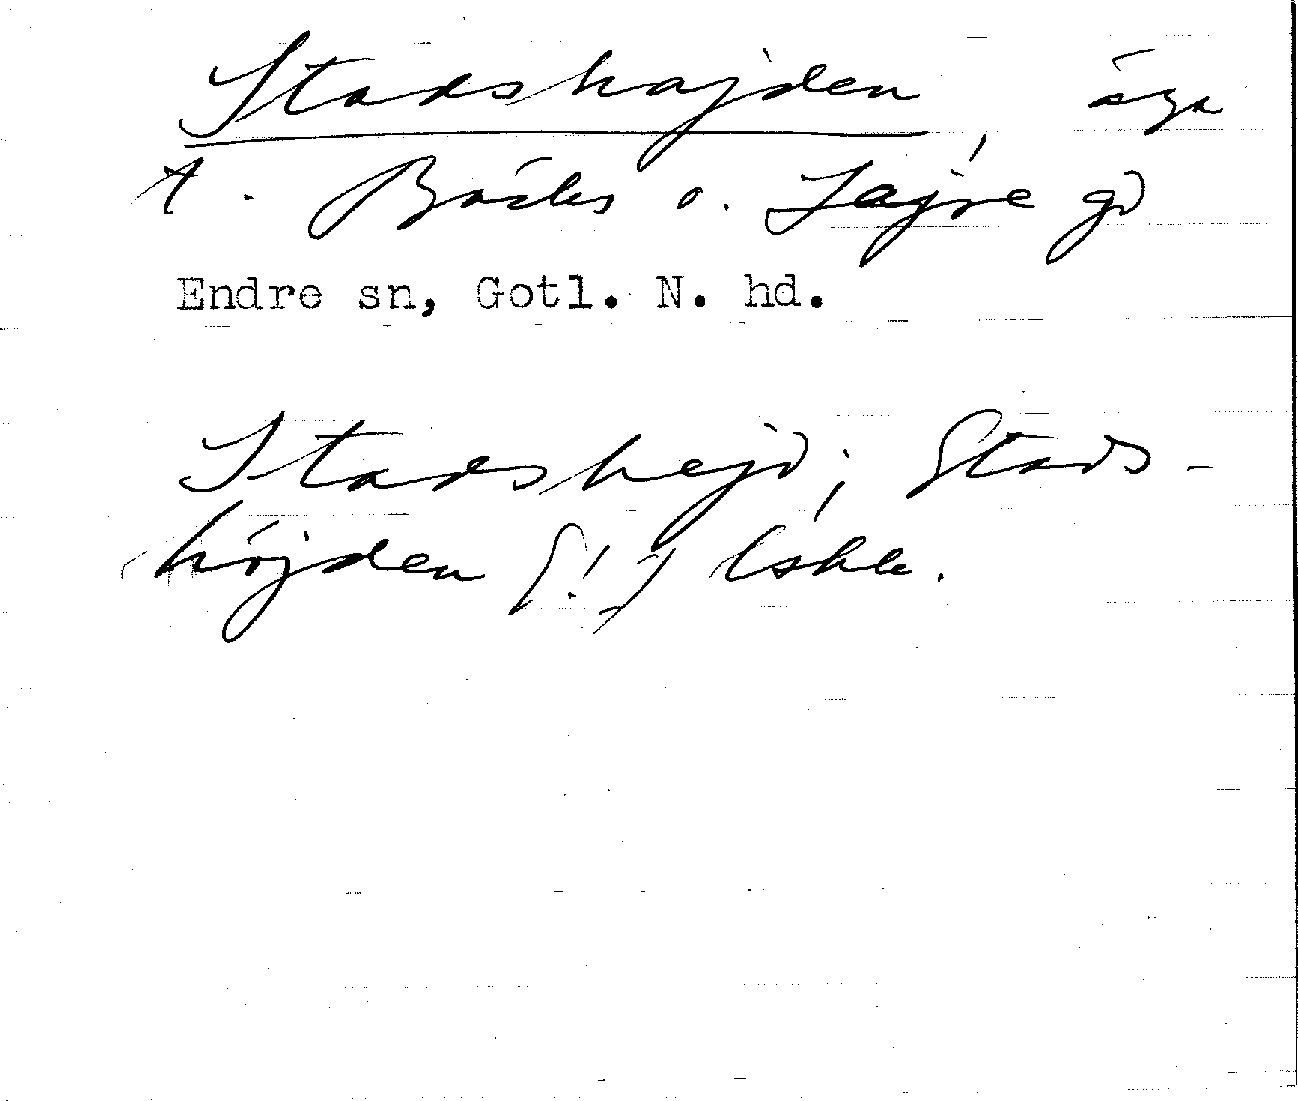 Stadshajden, äga
t. Bäcks o. Sajse gd
Endre sn, Gotl. N. hd.
Stadshejd; Stads-
höjden